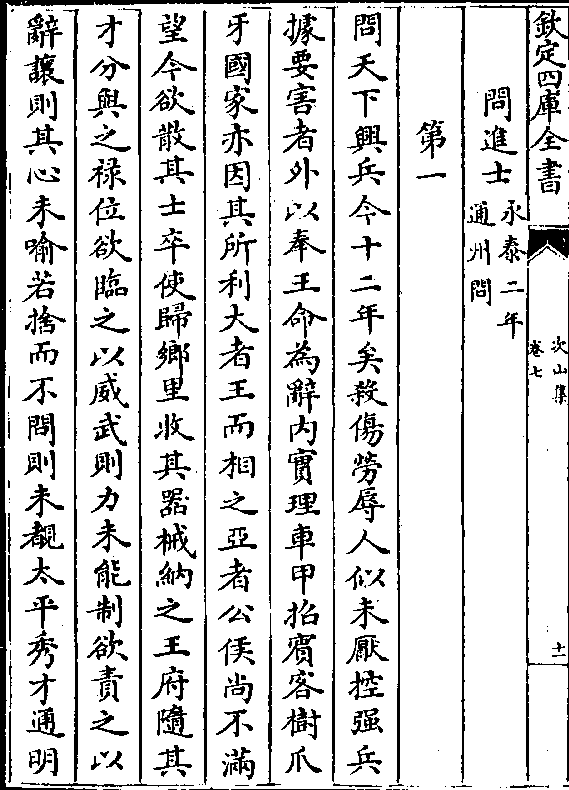 欽定四庫全書
次山集
卷七
十一
問進士永泰二年
通州問
第一
問天下興兵今十二年矣殺傷勞辱人似未厭控强兵
據要害者外以奉王命為辭内實理車甲招賔客樹爪
牙國家亦因其所利大者王而相之亞者公侯尚不滿
望今欲散其士卒使歸鄉里收其器械納之王府隨其
才分與之禄位欲臨之以威武則力未能制欲責之以
辭讓則其心未喻若捨而不問則未覩太平秀才通明